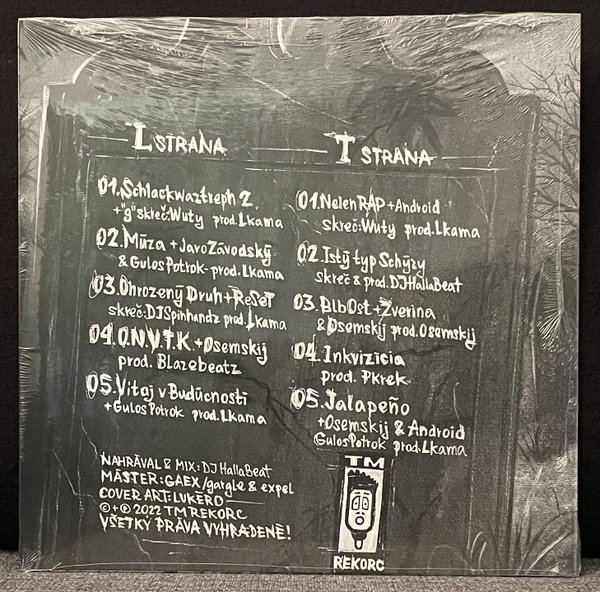 L STRANA
01. Schlackwaztreph 2
+"g" skreč: Wuty prod. Lkama
02. Múza + Jaro Závodský
& Gulos Potrok - prod. Lkama
03. Ohrozený Druh + ReSeT
skreč: DJ Spinhandz prod. Lkama
04. O.N.V.T.K. + Osemskij
prod. Blazebeatz
05. Vitaj v Budúcnosti
+ Gulos Potrok prod. Lkama
T STRANA
01. Nelen RAP + Android
skreč: Wuty prod. Lkama
02. Istý typ Schýzy
skreč & prod. DJ HallaBeat
03. AlbOst + Zverina
& Osemskij prod. Osemskij
04. Inkvizícia
prod. Pkrek
05. Jalapeño
+ Osemskij & Android
Gulos Potrok prod. Lkama
NAHRÁVAL & MIX: DJ HallaBeat
MÁSTER: GAEX / gargle & expel
COVER ART: LUKERO
©+℗ 2022 TM REKORC
VŠETKY PRÁVA VYHRADENÉ!
TM
REKORC